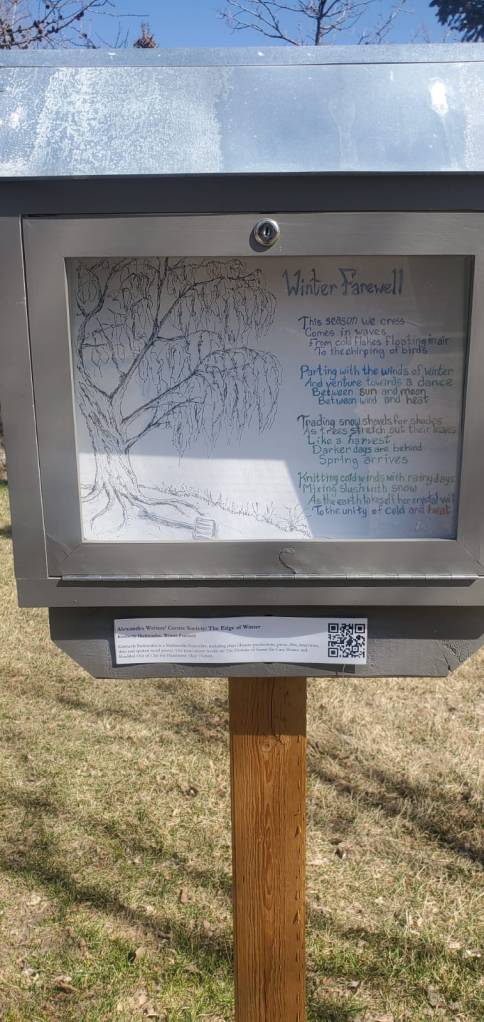 Winter Farewell
This season we cross
Comes in waves
From cold flakes floating in air
To the chirping of birds
Parting with the winds of winter
And venture towards a dance
Between sun and moon
Between wind and heat
Trading snow shovels for shades
As trees stretch out their leaves
Like a harvest
Darker days are behind
Spring arrives
Knitting cold winds with rainy days
Mixing slush with snow
As the earth her crystal
To the unity of cold and heat
Alexandra Writers' Centre Society: The Edge of Winter
Winter Farewell